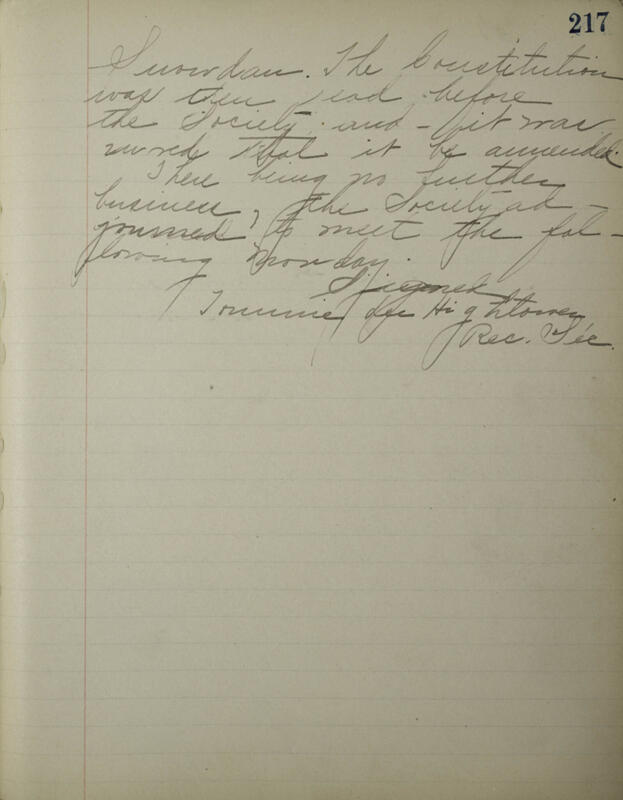 217
Snowdan. The Constitution
was then read before
the Society and it was
moved that it be amended.
There being no further
business, the Society ad-
journed to meet the fol-
lowing Monday.
Signed
Tommie Lee Hightower
Rec. Sec.